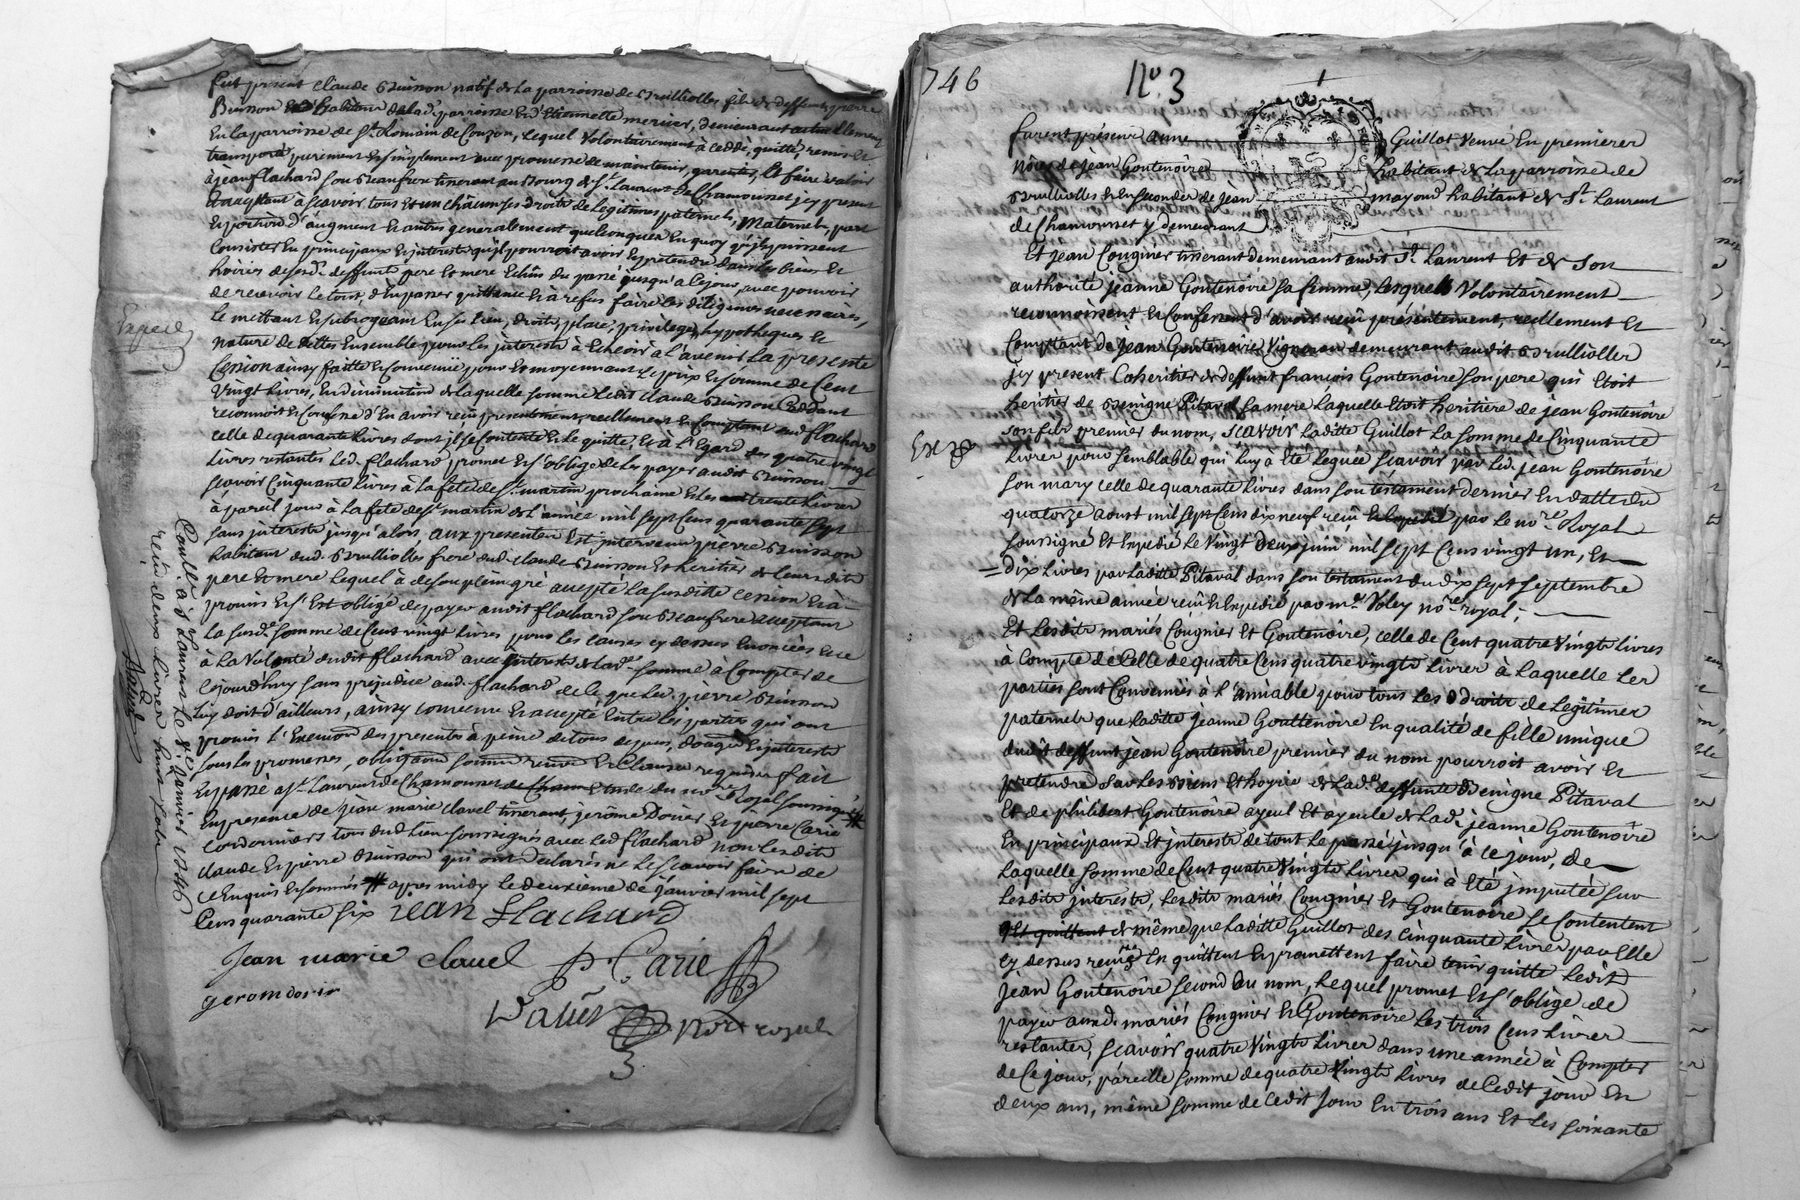 fut present claude Buisson natif de la parroisse de Brulliolles fils de deffunts pierre
Buisson habitant de lad. parroisse Et d'Etiennette mercier, demeurant actuellement
En la parroisse de St. Romain de Couzon, lequel volontairement à ceddé, quitté, remis Et
transporté purement Et simplement avec promesse de maintenir, garentir, Et faire valoir
à jean flachard son Beaufrere tisserant au Bourg de St. Laurent de Chamousset jcy present
Et acceptant à scavoir tous Et un châcun ses droits de legitimes paternels, Maternels, part
Et portion d'augment Et autres generalement quelconques En quoy qu'ils puissent
Consister En principaux Et interests qu'il pourroit avoir Et prétendre dans les biens Et
hoiries desesd. deffunts pere Et mere Echûs du passé jusqu'à cejour, avec pouvoir
de recevoir le tout, d'En passer quittance Et à refus faire les diligences necessaires,
le mettant Et subrogeant En son lieu, droit, place, privilege, hypotheque Et
nature de dettes Ensemble pour les jnterests à Echeoir à l'avenir la presente
Cession ainsy faitte Et convenüe pour Et moyennant le prix Et somme de Cent
vingt livres, En diminution de laquelle somme ledit claude Buisson Ceddant
reconnoit Et confesse d'En avoir reçû presentement, reellement Et Comptant dud. flachard
celle de quarante livres dont jl se contente Et le quitte, Et à l'Egard des quatre vingt
livres restantes led. flachard promet Et s'oblige de les payer audit Buisson
scavoir cinquante livres à la fête de St. martin prochaine Et les trente livres
à pareil jour à la fête de St. martin de l'année mil sept Cens quarante sept
sans jnterests jusqu'alors, aux presentes Est jntervenu pierre Buisson
habitant dud. Brulliolles frere dud. claude Buisson Et heritier de leursdits
pere Et mere lequel à de son plein gré accepté la susditte cession Et à
promis Et s'Est obligé de payer audit flachard son Beaufrere acceptant
la susde. somme de Cent vingt livres pour les causes cy dessus Enoncées Et ce
à la volonté dudit flachard avec jnterests de lade. somme à Compter de
cejourd'huy sans prejudice aud. flachard de ce que led. pierre Buisson
luy doit d'ailleurs, ainsy convenu Et accepté Entre les parties qui ont
promis l'Execution des presentes à peine de tous depens, domages Et jnterests
sous les promesses, obligations soumissions renon Et Clauses requises fait
Et passé à St. Laurent de Chamousset Etude du nore. Royal soussigné #
En presence de jean marie clavel tisserant, jerôme Dorier Et pierre Carie
cordonniers tous dud. lieu soussignés avec led. flachard non lesdits
claude Et pierre Buisson qui ont declarés ne le scavoir faire de
ce Enquis Et sommés # apres midy le deuxième de janvier mil sept
Cens quarante six jean flachard
Jean marie clavel p Carie
gerom dorier
nore royal
Exped
Conllé à St Laurent le 8e. Janvier 1746
reçu deux livres huit sols
746 No. 3
furent présens anne Guillot veuve En premieres
nôces de jean Goutenoire habitant de la parroisse de
Brulliolles Et En secondes de jean mayoud habitant de St. Laurent
de Chamousset y demeurant
Et jean Cougnier tisserant demeurant audit St. Laurent Et de son
authorité jeanne Goutenoire sa femme, lesquels volontairement
reconnoissent Et Confessent d'avoir reçû présentement, reellement Et
Comptant de jean Goutenoire Vigneron demeurant audit Brulliolles
jcy present Coheritier de deffunt françois Goutenoire son pere qui Etoit
heritier de Benigne Pitaval sa mere laquelle Etoit heritiere de jean Goutenoire
son fils premier du nom, scavoir laditte Guillot la somme de Cinquante
livres pour semblable qui luy à Eté leguée scavoir par led. jean Goutenoire
son mary celle de quarante livres dans son testament dernier En datte du
quatorze aoust mil sept Cens dix neuf reçû Et Expedié par le nore. Royal
soussigné Et Expedié le vingt deux juin mil sept Cens vingt un, Et
dix livres par laditte Pitaval dans son testament du dix sept septembre
de la même année reçû Et Expedié par me. Voley nore. royal;
Et lesdits mariés Cougnier Et Goutenoire, celle de Cent quatre vingts livres
à compte de Celle de quatre Cens quatre vingts livres à laquelle les
parties sont Convenües à l'amiable pour tous les droits de legitimes
paternels que laditte jeanne Goutenoire En qualité de fille unique
dudit deffunt jean Goutenoire premier du nom pourroit avoir Et
pretendre sur les Biens Et hoyrie de lade. deffunte Benigne Pitaval
Et de philibert Goutenoire ayeul Et ayeule de lad. jeanne Goutenoire
En principaux Et jnterests de tout le passé jusqu'à ce jour, de
laquelle somme de Cent quatre vingts livres qui à Eté jmputée sur
lesdits jnterests, lesdits mariés Cougnier Et Goutenoire se contentent
Et quittent de même que laditte Guillot des cinquante livres par Elle
cy dessus reçûes En quittent Et promettent faire tenir quitte ledit
jean Goutenoire second du nom, lequel promet Et s'oblige de
payer ausd. mariés Cougnier Et Goutenoire les trois Cens livres
restantes, scavoir quatre vingts livres dans une année à Compter
de Ce jour, pareille somme de quatre vingts livres de Cedit jour En
deux ans, même somme de cedit jour En trois ans Et les soixante